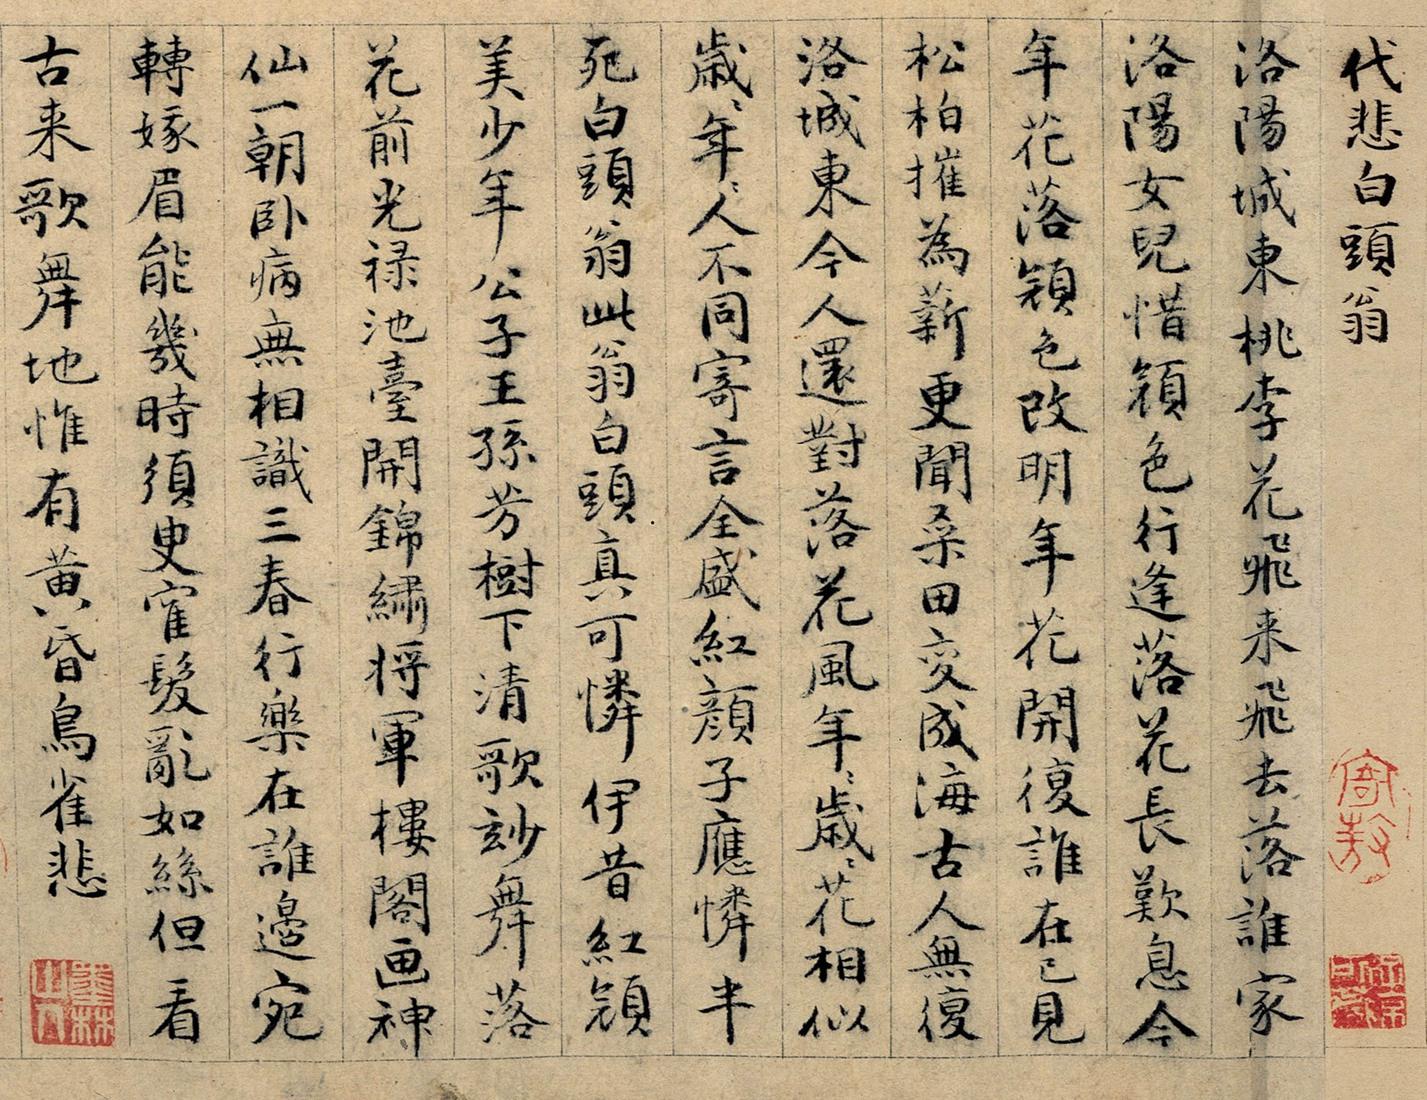 代悲白頭翁
洛陽城東桃李花飛来飛去落誰家
洛陽女兒惜顔色行逢落花長歎息今
年花落顔色改明年花開復誰在已見
松柏摧為薪更聞桑田变成海古人無復
洛城東今人還對落花風年〻歲〻花相似
歲〻年〻人不同寄言全盛紅顔子應憐半
死白頭翁此翁白頭真可憐伊昔紅顔
美少年公子王孫芳樹下清歌玅舞落
花前光禄池臺開錦繡将軍樓閣画神
仙一朝卧病無相識三春行樂在誰邉宛
轉嫁眉能幾時須臾寉髮亂如絲但看
古来歌舞地惟有黄昏鳥雀悲